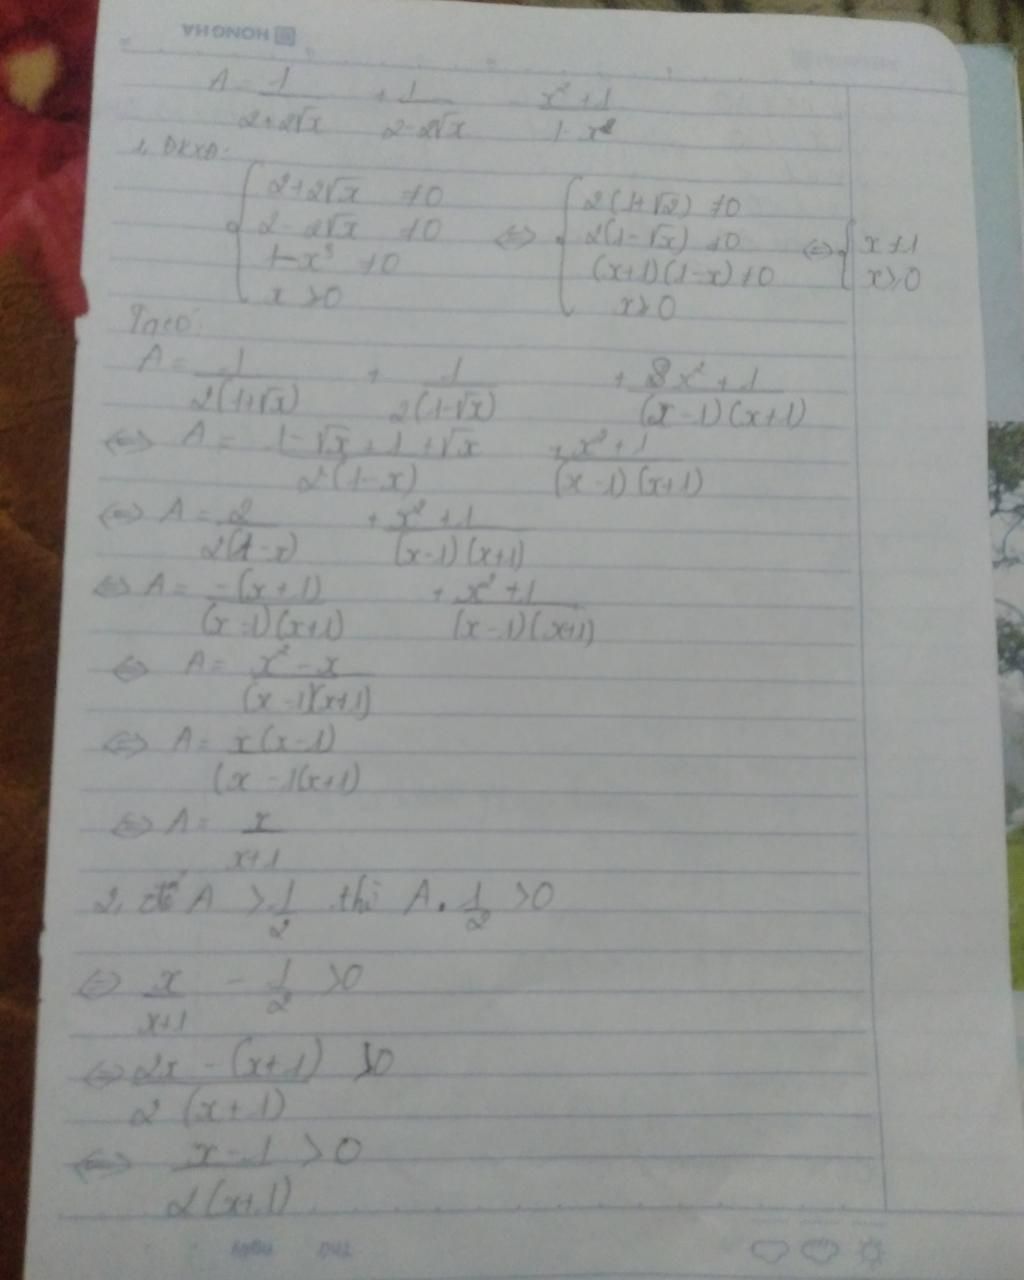 HONG HA
A = 1/(2+2√x) + 1/(2-2√x) - (x²+1)/(1-x²)
1, ĐKXĐ:
{ 2+2√x ≠0 ⇔ { 2(1+√2) ≠0 ⇔ { x≠1
2-2√x ≠0 2(1-√x) ≠0 x≥0
1-x² ≠0 (x+1)(1-x)≠0
x≥0 x≥0
Ta có:
A = 1/(2(1+√x)) + 1/(2(1-√x)) + (x²+1)/((x-1)(x+1))
⇔ A = (1-√x+1+√x)/(2(1-x)) + (x²+1)/((x-1)(x+1))
⇔ A = 2/(2(1-x)) + (x²+1)/((x-1)(x+1))
⇔ A = -(x+1)/((x-1)(x+1)) + (x²+1)/((x-1)(x+1))
⇔ A = (x²-x)/((x-1)(x+1))
⇔ A = x(x-1)/(x-1(x+1)
⇔ A = x/(x+1)
2, để A > 1/2 thì A - 1/2 >0
⇔ x/(x+1) - 1/2 >0
⇔ (2x-(x+1))/(2(x+1)) >0
⇔ (x-1)/(2(x+1)) >0
Thứ Ngày